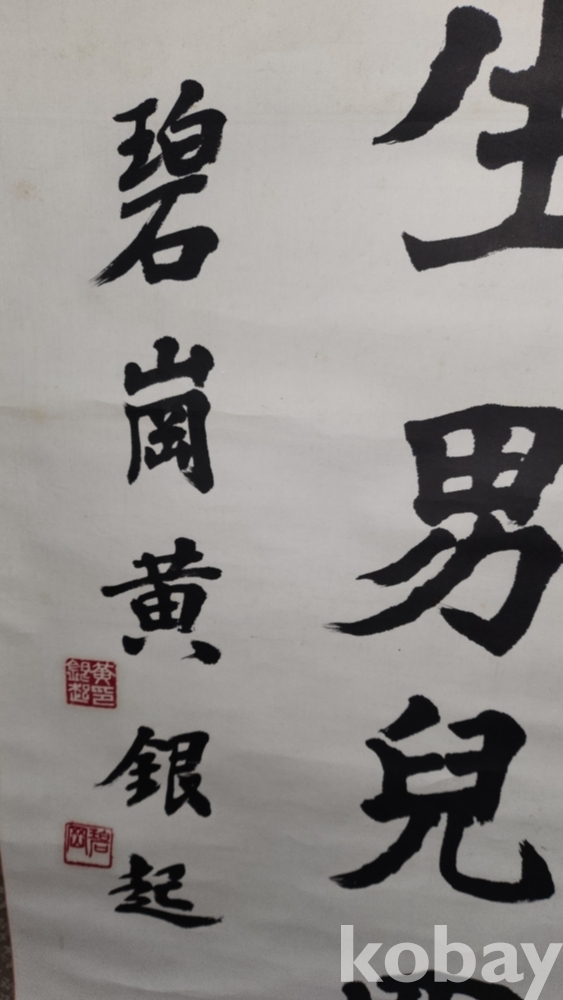 生男兒
碧崗黃銀起
黃印銀起
碧岡
kobay